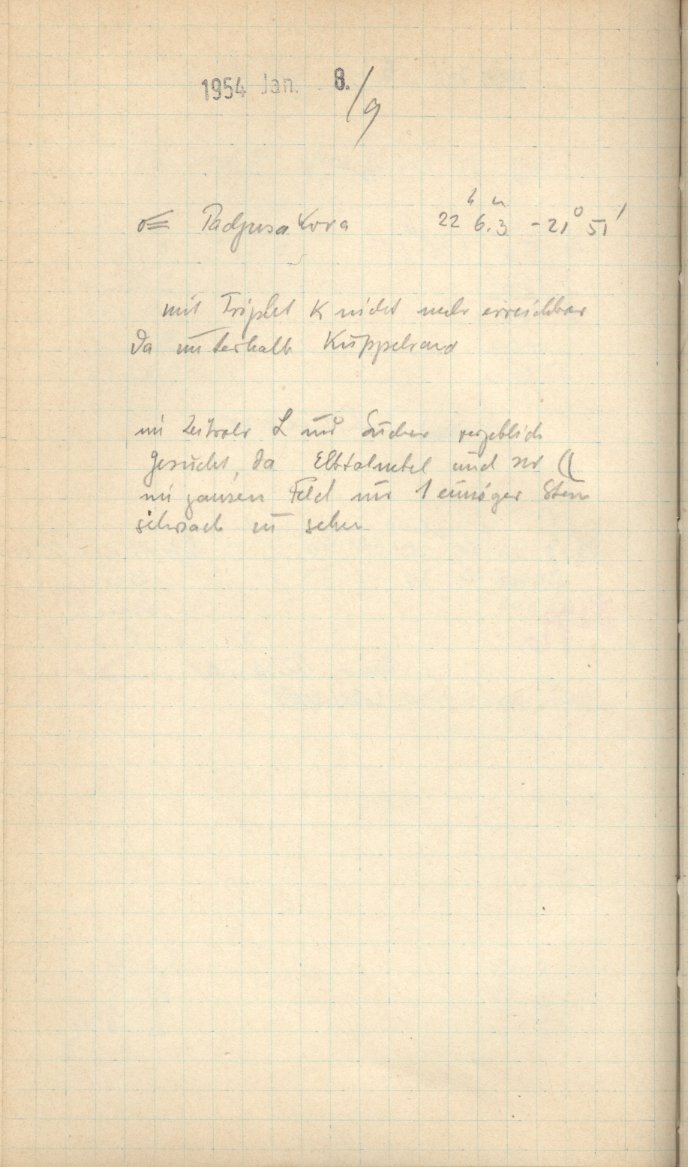 1954 Jan. 8./9
☄ Padjusakova 22h 6.3m -21° 51'
mit Triplet K nicht mehr erreichbar
da unterhalb Kuppelrand
im L und Sucher vergeblich
gesucht, da Elbtalnebel und ☾
im ganzen Feld nur 1 einziger Stern
schwach zu sehen